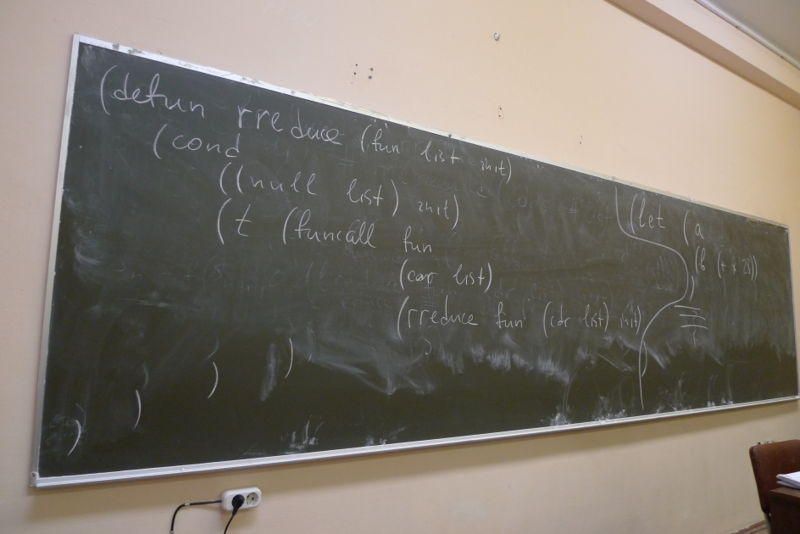 (defun rreduce (fun list init)
(cond
((null list) init)
(t (funcall fun
(car list)
(rreduce fun (cdr list) init)
)
) ) ) )
(let (a
(b (+ x 28))
)